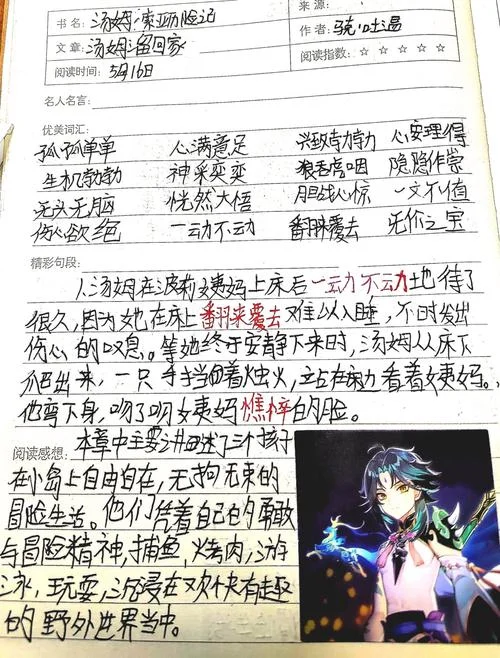 书 名: 汤姆·索亚历险记
来 源:
文 章: 汤姆溜回家
作 者: 马克·吐温
阅读时间: 5月16日
阅读指数: ☆☆☆☆☆
名人名言:
优美词汇:
孤孤单单 心满意足 兴致勃勃 心安理得
生机勃勃 神采奕奕 狼吞虎咽 隐隐作祟
无头无脑 恍然大悟 胆战心惊 一文不值
伤心欲绝 一动不动 翻来覆去 无价之宝
精彩句段:
1.汤姆在波莉姨妈上床后一动不动地待了
很久,因为她在床上翻来覆去难以入睡,不时发出
伤心的叹息。等她终于安静下来时,汤姆从床下
爬出来,一只手挡着烛火,立在床边看着姨妈。
他弯下身,吻了吻姨妈憔悴的脸。
阅读感想:
本章中主要讲述了三个孩子
在小岛上自由自在,无拘无束的
冒险生活。他们凭着自己的勇敢
与冒险精神,捕鱼,烤肉,游
泳,玩耍,沉浸在欢快有趣
的野外世界当中。